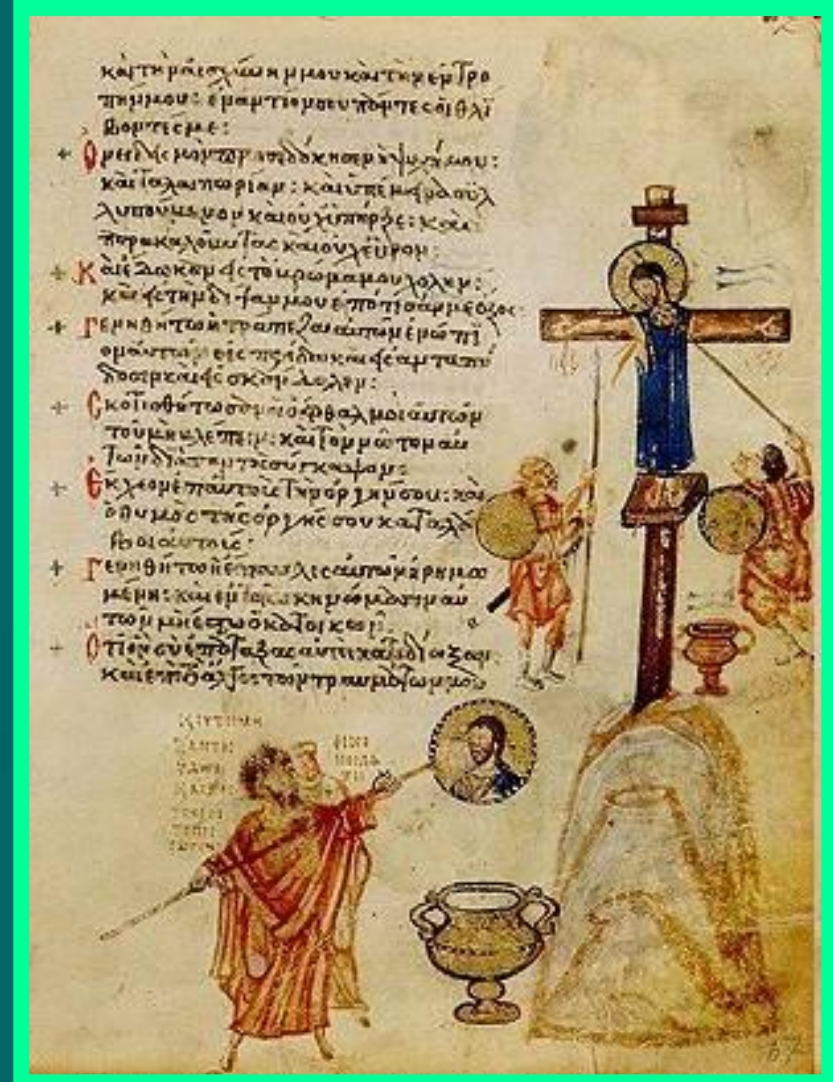 καὶ τὴν αἰσχύνην μου καὶ τὴν ἐντρο
πήν μου: ἐναντίον σου πάντες οἱ θλί
βοντές με:
Ὀνειδισμὸν προσεδόκησεν ἡ ψυχή μου:
καὶ ταλαιπωρίαν: καὶ ὑπέμεινα συλ
λυπούμενον καὶ οὐχ ὑπῆρξε: καὶ
παρακαλοῦντας καὶ οὐχ εὗρον:
Καὶ ἔδωκαν εἰς τὸ βρῶμα μου χολήν:
καὶ εἰς τὴν δίψαν μου ἐπότισάν με ὄξος:
Γενηθήτω ἡ τράπεζα αὐτῶν ἐνώπι
ον αὐτῶν εἰς παγίδα καὶ εἰς ἀνταπό
δοσιν καὶ εἰς σκάνδαλον:
Σκοτισθήτωσαν οἱ ὀφθαλμοὶ αὐτῶν
τοῦ μὴ βλέπειν: καὶ τὸν νῶτον αὐ
τῶν διὰ παντὸς σύγκαψον:
Ἔκχεον ἐπ' αὐτοὺς τὴν ὀργήν σου: καὶ
ὁ θυμὸς τῆς ὀργῆς σου καταλά
βοι αὐτούς:
Γενηθήτω ἡ ἔπαυλις αὐτῶν ἠρημω
μένη: καὶ ἐν τοῖς σκηνώμασιν αὐ
τῶν μὴ ἔστω ὁ κατοικῶν:
Ὅτι ὃν σὺ ἐπάταξας αὐτοὶ κατεδίωξαν:
καὶ ἐπὶ τὸ ἄλγος τῶν τραυμάτων μου
67